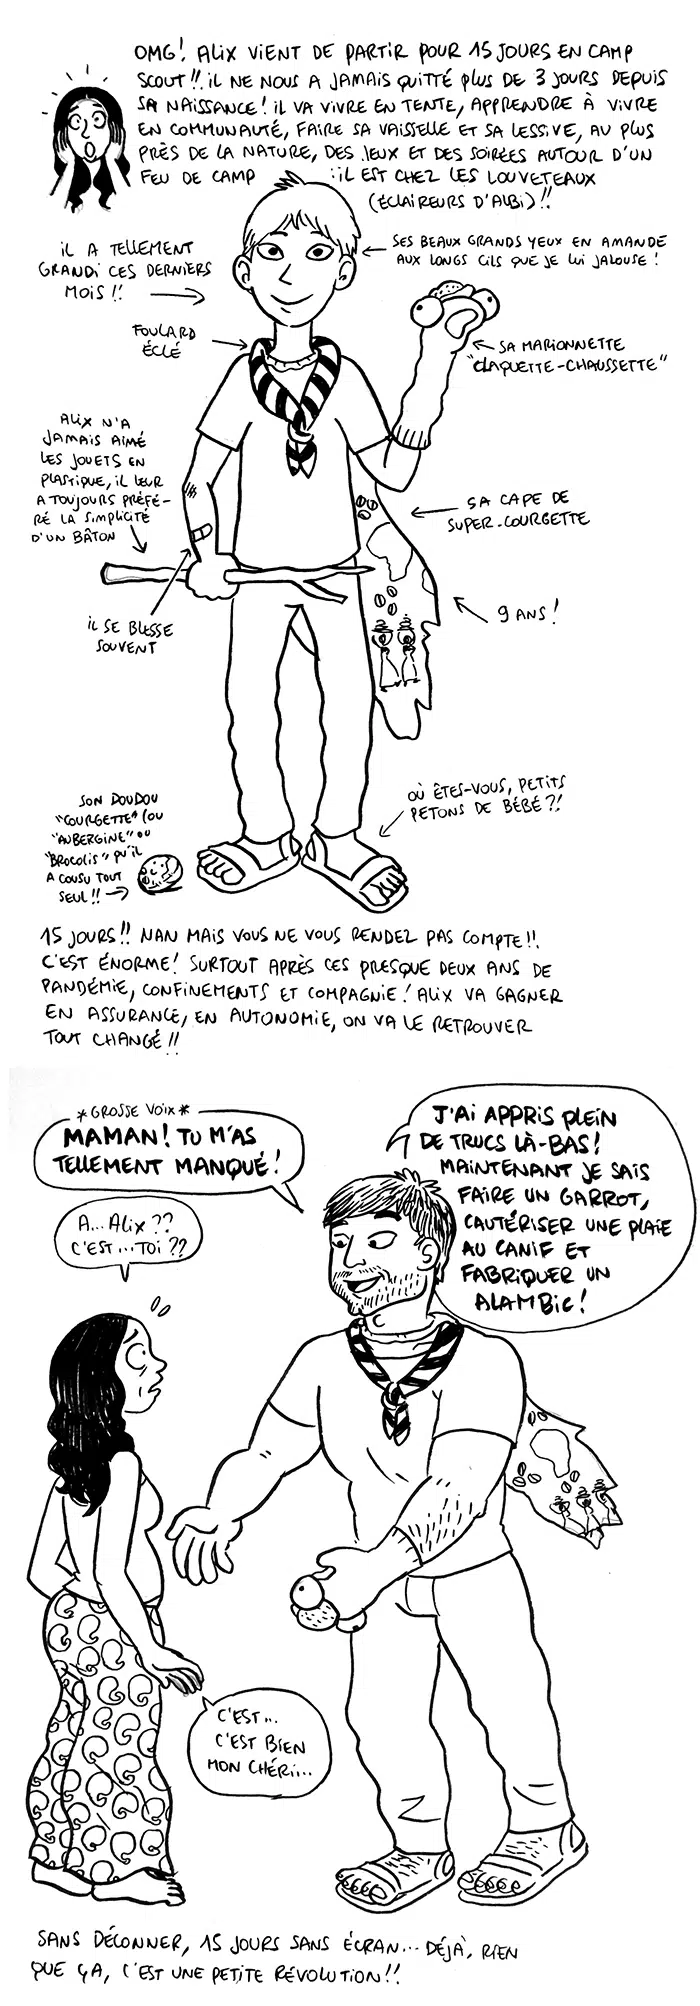 OMG! ALIX VIENT DE PARTIR POUR 15 JOURS EN CAMP
SCOUT!! IL NE NOUS A JAMAIS QUITTÉ PLUS DE 3 JOURS DEPUIS
SA NAISSANCE! IL VA VIVRE EN TENTE, APPRENDRE À VIVRE
EN COMMUNAUTÉ, FAIRE SA VAISSELLE ET SA LESSIVE, AU PLUS
PRÈS DE LA NATURE, DES JEUX ET DES SOIRÉES AUTOUR D'UN
FEU DE CAMP : IL EST CHEZ LES LOUVETEAUX
(ÉCLAIREURS D'ALBI)!!
IL A TELLEMENT
GRANDI CES DERNIERS
MOIS!!
SES BEAUX GRANDS YEUX EN AMANDE
AUX LONGS CILS QUE JE LUI JALOUSE!
FOULARD
ÉCLÉ
SA MARIONNETTE
"CLAQUETTE-CHAUSSETTE"
ALIX N'A
JAMAIS AIMÉ
LES JOUETS EN
PLASTIQUE, IL LEUR
A TOUJOURS PRÉFÉ-
RÉ LA SIMPLICITÉ
D'UN BÂTON
SA CAPE DE
SUPER-COURGETTE
9 ANS!
IL SE BLESSE
SOUVENT
OÙ ÊTES-VOUS, PETITS
PETONS DE BÉBÉ?!
SON DOUDOU
"COURGETTE" (OU
"AUBERGINE" OU
"BROCOLIS") QU'IL
A COUSU TOUT
SEUL!!
15 JOURS!! NAN MAIS VOUS NE VOUS RENDEZ PAS COMPTE!!
C'EST ÉNORME! SURTOUT APRÈS CES PRESQUE DEUX ANS DE
PANDÉMIE, CONFINEMENTS ET COMPAGNIE! ALIX VA GAGNER
EN ASSURANCE, EN AUTONOMIE, ON VA LE RETROUVER
TOUT CHANGÉ!!
*GROSSE VOIX*
MAMAN! TU M'AS
TELLEMENT MANQUÉ!
J'AI APPRIS PLEIN
DE TRUCS LÀ-BAS!
MAINTENANT JE SAIS
FAIRE UN GARROT,
CAUTÉRISER UNE PLAIE
AU CANIF ET
FABRIQUER UN
ALAMBIC!
A... ALIX??
C'EST... TOI??
C'EST...
C'EST BIEN
MON CHÉRI...
SANS DÉCONNER, 15 JOURS SANS ÉCRAN... DÉJÀ, RIEN
QUE ÇA, C'EST UNE PETITE RÉVOLUTION!!